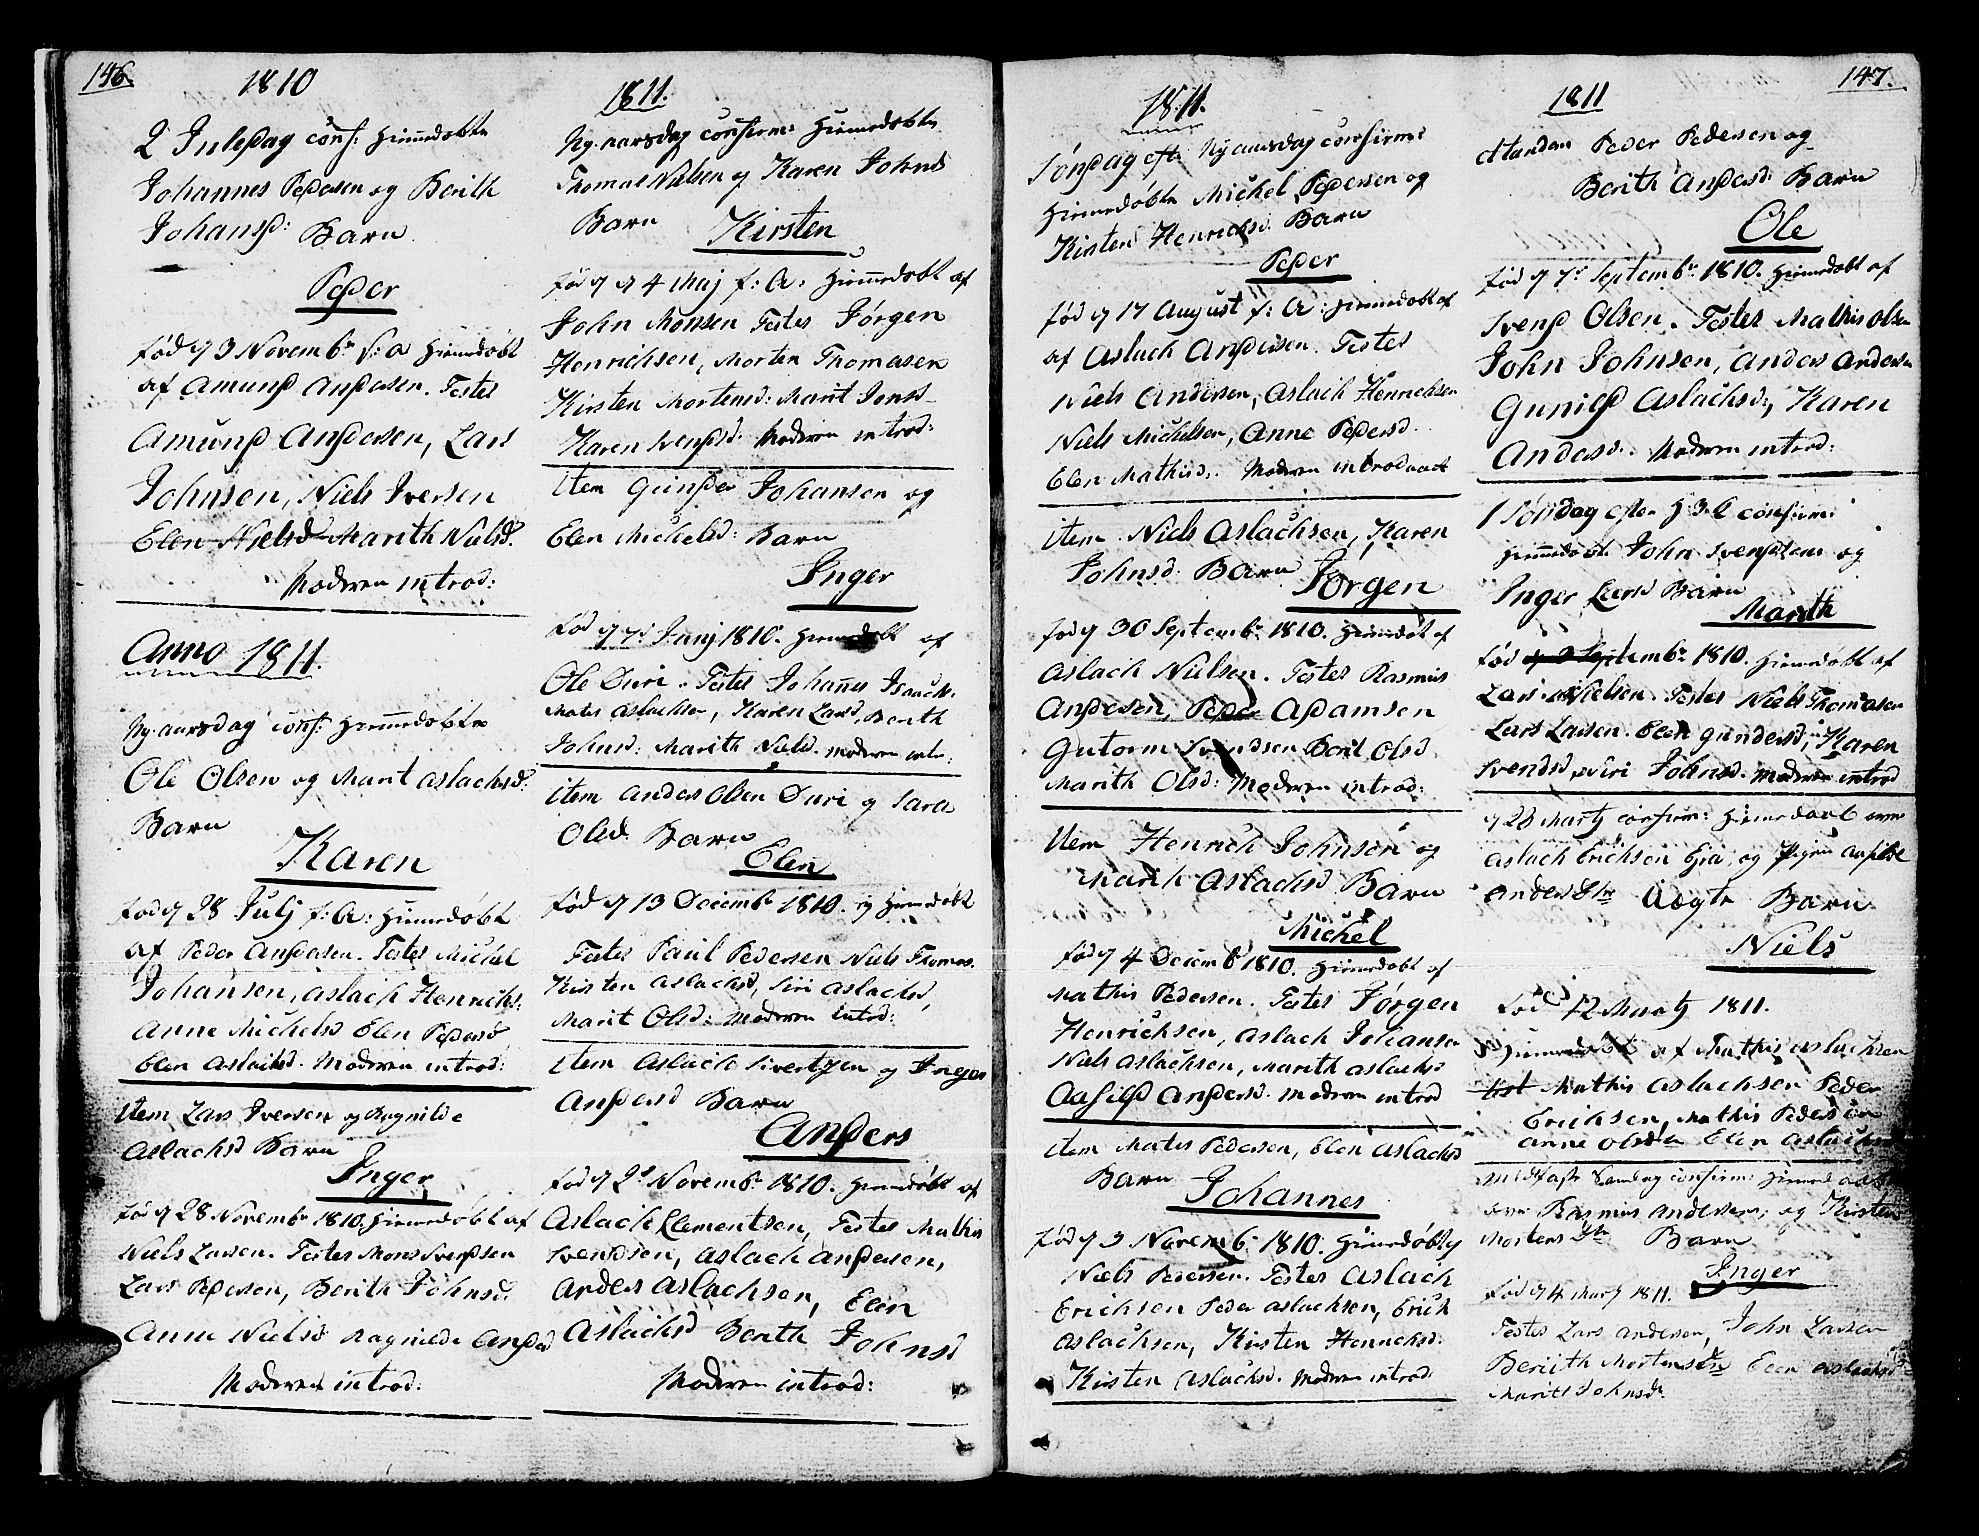 146.
1810
2 Juledag conf: Hiemedøbte
Johannes Pedersen og Berith
Johansd: Barn
Peder
fød d 3 Novembr f: a Hiemedøbt
af Amund Andersen. Testes
Amund Andersen, Lars
Johnsen, Niels Iversen
Elen Nielsd Marith Nielsd.
Moderen introd:
Anno 1811.
Ny-aarsdag conf: Hiemmedøbte
Ole Olsen og Marit Aslachsd:
Barn
Karen
fød d 28 Julj f: A: Hiemedøbt
af Peder Andersen. Testes Michel
Johansen, Aslach Henrichs:
Anne Michelsd Elen Pedersd
Elen Aslachsd. Moderen introd:
Item Lars Iversen og Ragnilde
Aslachsd Barn
Inger
fød d 28 Novembr 1810. Hiemedøbt af
Niels Larsen. Testes Mons Svendsen
Lars Pedersen, Berith Johnsd.
Anne Nielsd Ragnilde Andersd
Moderen introd:
1811.
Ny-aarsdag confirm: Hiemedøbte
Thomas Nielsen og Karen Johnsd
Barn
Kirsten
fød d 4 Maj f: A: Hiemmedøbt af
John Monsen Testes Jørgen
Henrichsen, Morten Thomasen
Kirsten Mortensd: Marit Jonsd
Karen Svendsd. Moderen introd:
Item Gunder Johansen og
Elen Michelsd: Barn
Inger
fød d 7 Junj 1810. Hiemedøbt af
Ole Duri. Testes Johannes Isaachs.
Mates Aslachsen, Karen Larsd, Berith
Johnsd: Marith Nielsd. Moderen intr:
Item Anders Olsen Duri og Sara
Olsd. Barn
Elen
fød d 13 Decembr 1810. og Hiemedøbt
Testes Paul Pedersen Niels Thomas.
Kirsten Aslachsd, Siri Aslachsd,
Marit Olsd: Moderen introd:
Item Aslach Sivertsen og Inger
Andersd Barn
Anders
fød d 2 Novembr 1810. Hiemedøbt af
Aslach Clementsen, Testes Mathis
Svendsen, Aslach Andersen,
Anders Aslachsen, Elen
Aslachsd Berith Johnsd
Moderen introd:
1811.
Søndag eftr Nyaarsdag confirm:
Hiemedøbte Michel Pedersen og
Kirsten Henrichsd. Barn
Peder
fød d 17 August f: A: Hiemedøbt af
af Aslach Andersen. Testes
Niels Andersen, Aslach Henrichsen
Niels Michelsen, Anne Pedersd.
Elen Mathisd. Moderen introduced
Item Niels Aslachsen, Karen
Johnsd. Barn
Jørgen
fød d 30 Septembr 1810. Hiemedøbt af
Aslach Nielsen. Testes Rasmus
Andersen, Peder Adamsen
Gutorm Svendsen Berit Olsd
Marith Olsd: Moderen introd:
Item Henrich Johnsen og
Marith Aslachsd Barn
Michel
fød d 4 Decembr 1810. Hiemedøbt af
Mathis Pedersen. Testes Jørgen
Henrichsen, Aslach Johansen
Niels Aslachsen, Marith Aslachs:
Aasild Andersd. Moderen introd
Item Mates Pedersen, Elen Aslachsd
Barn
Johannes
fød d 3 Novembr 1810. Hiemedøbt af
Niels Pedersen. Testes Aslach
Erichsen Peder Aslachsen, Erich
Aslachsen, Kirsten Henrichsd:
Kirsten Aslachsd. Moderen introd
1811
147.
Peder Pedersen og
Berith Andersd. Barn
Ole
fød d 7 Septembr 1810. Hiemedøbt af
Svend Olsen. Testes Mathis Olsen
John Johnsen, Anders Andersen
Gunild Aslachsd:, Karen
Andersd. Moderen introd:
1 Søndag efter H 3 K confirm:
Hiemedøbte John Svendsen og
Inger Larsd Barn
Marith
fød d 9 Septembr 1810. Hiemedøbt af
Lars Nielsen. Testes Niels Thomasen
Lars Larsen. Elen Gundersd, Karen
Svendsd, Siri Johnsd. Moderen introd
d 28 Martj confirm: Hiemedøbt
Aslach Erichsen Eira og Aasilde
Andersdtr Ægte Barn
Niels
fød 12 Martj 1811.
Hiemedøbt af Mathis Aslachsen
test Mathis Aslachsen Peder
Erichsen, Mathis Pedersen
Anne Olsdtr Elen Aslachsd
Midfaste Søndag confirm: Hiemedøbt
Rasmus Andersen, og Kirsten
Mortensdtr Barn
Inger
fød d 4 Martj 1811.
Testes Lars Andersen, John Larsen
Beriith Mortensdtr Elen Aslachsd
Marit Johnsdr